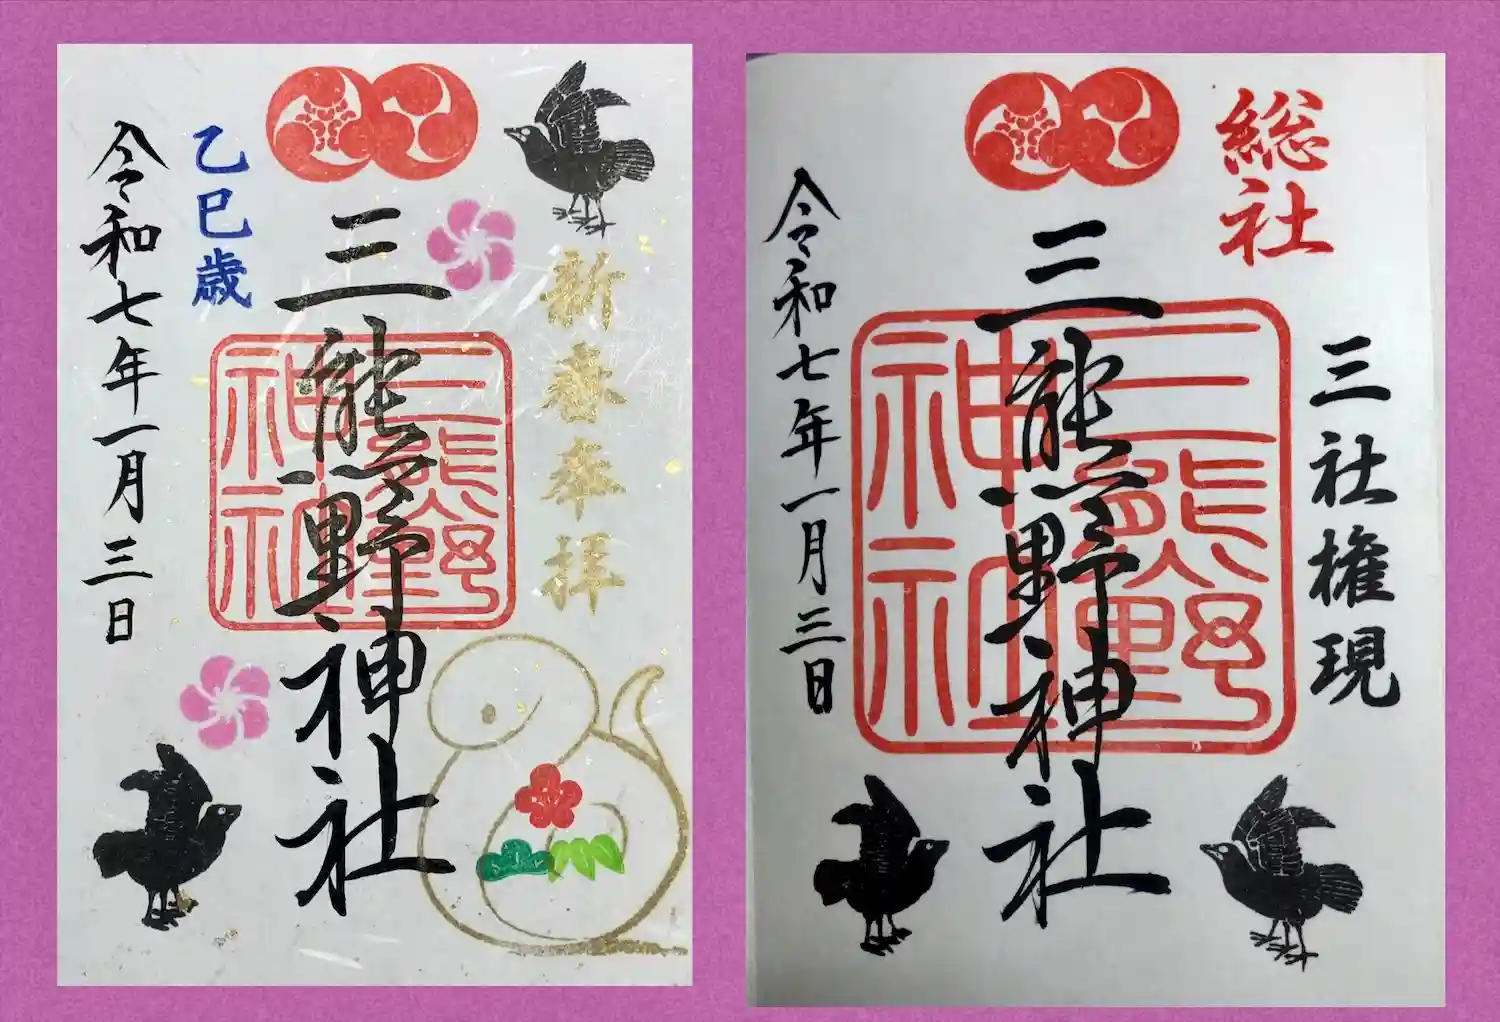 新春奉拝
三熊野神社
三熊野神社
乙巳歳
令和七年一月三日
総社
三社権現
三熊野神社
三熊野神社
令和七年一月三日